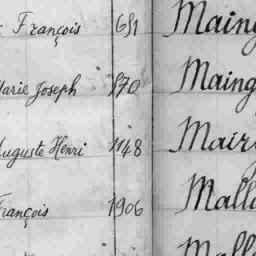 François 651 Maing
Marie Joseph 870 Maing
Auguste Henri 1148 Mair
François 1906 Malla